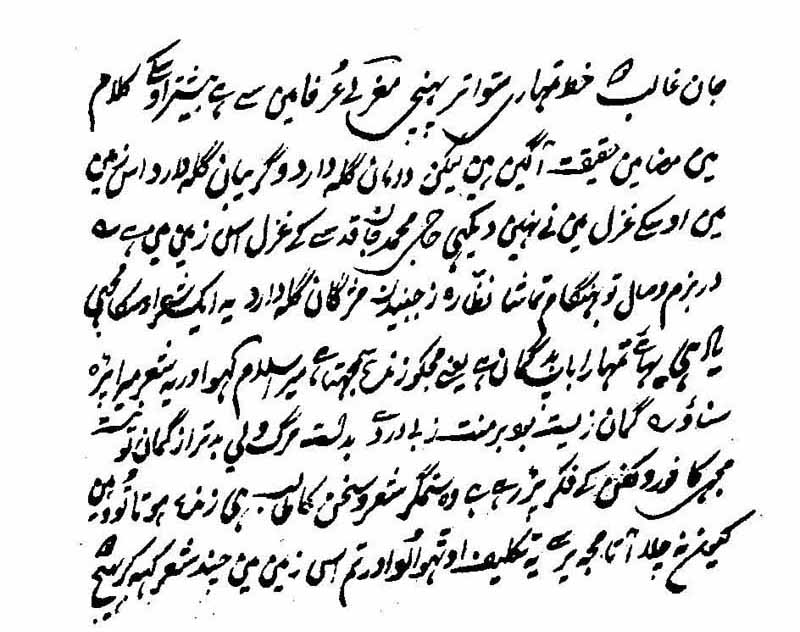 جان غالب خط تمہاری متواتر پہنچی مغربے عرفا مین سے ہے بیشتر اوسکے کلام
مین مضامین حقیقت آگین ہین لیکن درمان گلہ دارد و گریبان گلہ دارد اس زمین
مین اوسکے غزل مین نے نہین دیکہی حاجی محمد جان قدسے کے غزل اس زمین مین ہے
در بزم وصال تو بہنگام تماشا نظارہ ز جنبیدن مژگان گلہ دارد یہ ایک شعر اوسکا مجہی
یاد ہی بہائے تمہارا باپ بد گمان ہے یعنے مجکو زندہ سمجہتا ہے میرا سلام کہو اور یہ شعر میرا پڑہ
سناؤ گمان زیست بود بر منت ز بیدردے بدست مرگ ولے بدتر از گمان تو نیست
مجہی کافور و کفن کے فکر پڑ رہے ہے وہ ستمگر شعر و سخن کا طالب ہی زندہ ہوتا تو وہین
کیون نہ چلا آتا مجہ پر سے یہ تکلیف اوٹہوا لو اور تم اس زمین مین چند شعر کہہ کر بہیج